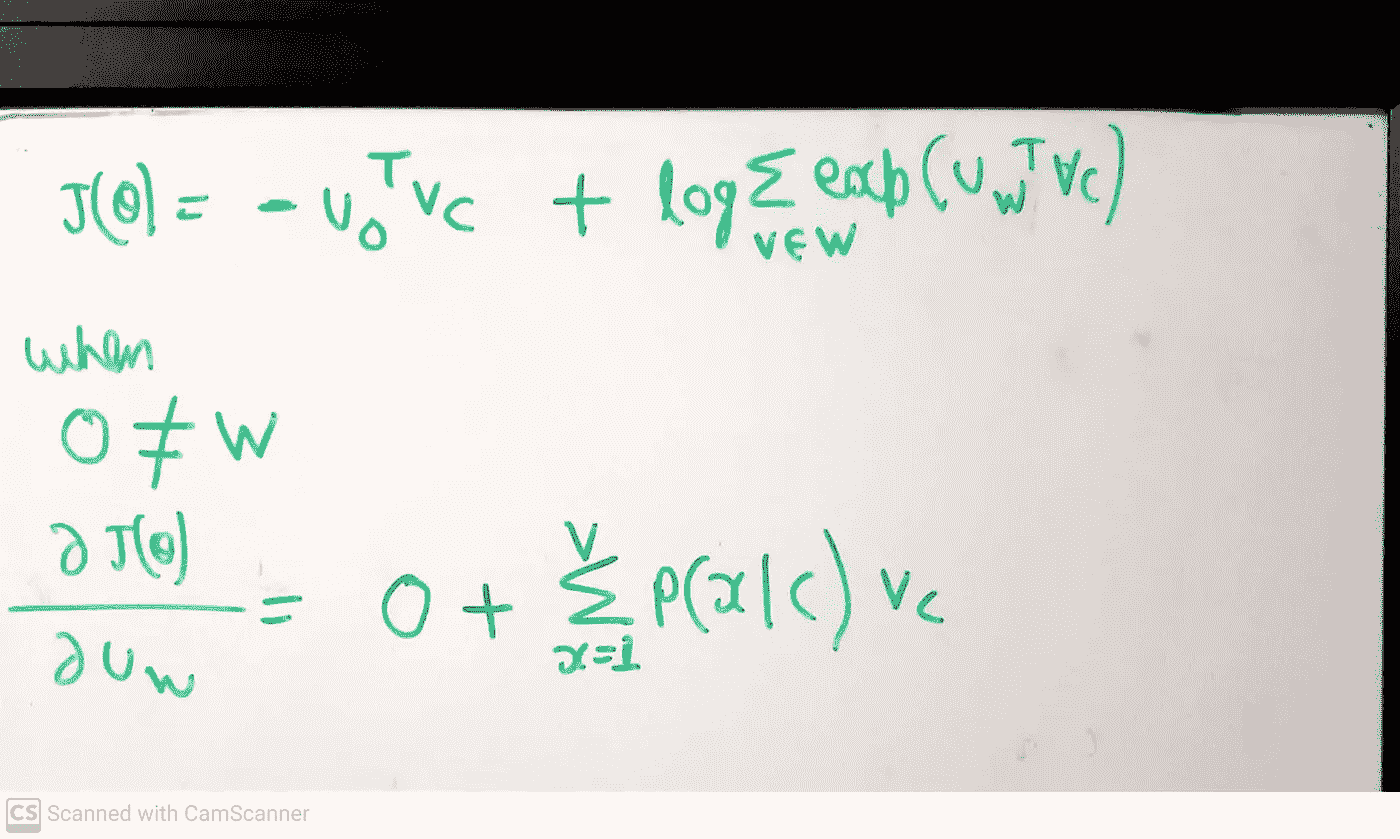 J(θ) = - u_o^T v_c + log Σ_{v∈w} exp(u_w^T v_c)
when
o ≠ w
∂J(θ)/∂u_w = 0 + Σ_{x=1}^{V} p(x|c) v_c
CS Scanned with CamScanner